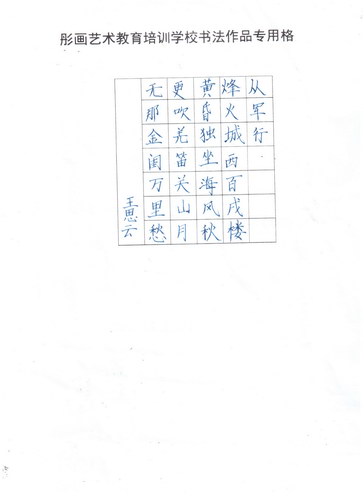 彤画艺术教育培训学校书法作品专用格
从军行
烽火城西百戍楼
黄昏独坐海风秋
更吹羌笛关山月
无那金闺万里愁
王思云